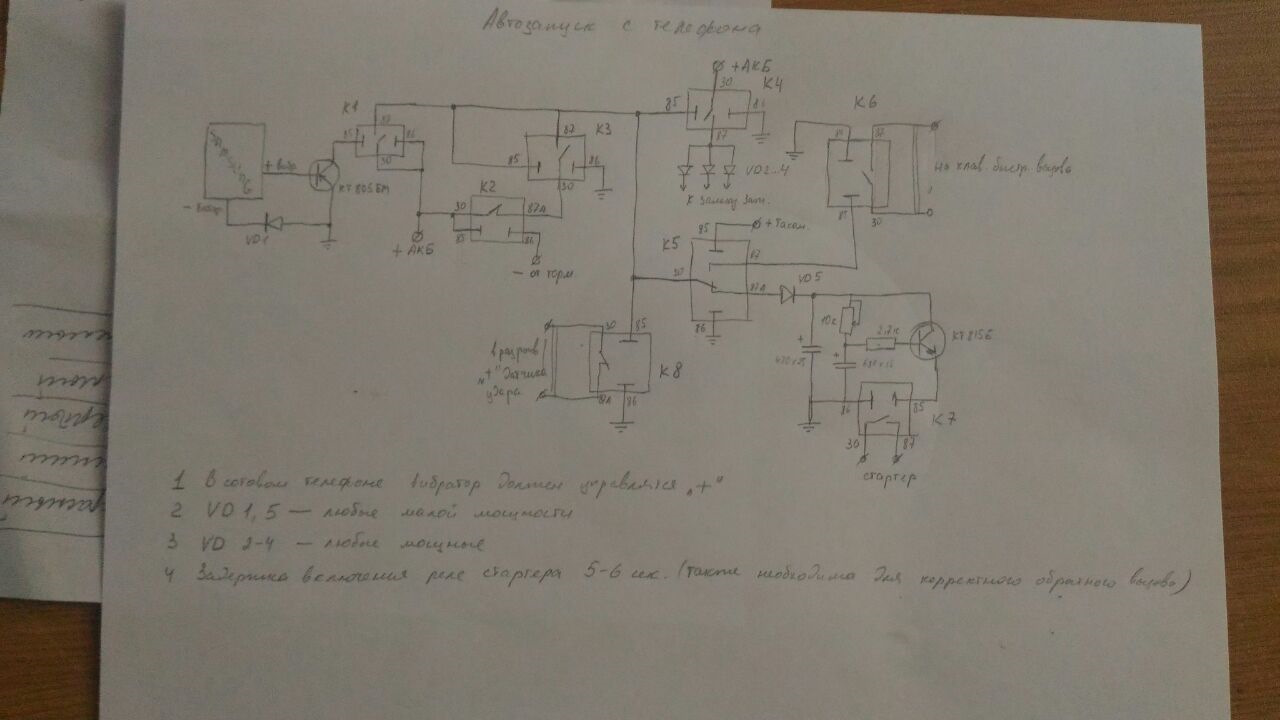 Автозапуск с телефона
+АКБ
K4
30
85
86
87
VD2...4
К замку заж.
K1
87
85
86
30
+ вибр
КТ805БМ
- вибр
VD1
+ АКБ
K3
87
85
86
30
K2
30
87А
85
86
- от торм.
K6
87
30
на клав. быстр. вызова
K5
85
+Тахом.
87
30
87А
86
VD5
10к
2,7к
КТ815Б
86
85
K7
30
87
стартер
30
85
в разрыв
"+" датчика
удара
K8
86
1 В сотовом телефоне вибратор должен управляться "+"
2 VD1,5 — любые малой мощности
3 VD 2-4 — любые мощные
4 Задержка включения реле стартера 5-6 сек. (также необходима для корректного обратного вызова)